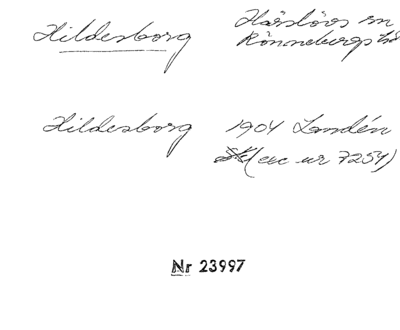 Hildesborg Härslövs sn
Rönnebergs hd
Hildesborg 1904 Landén
(acc nr 7254)
Nr 23997